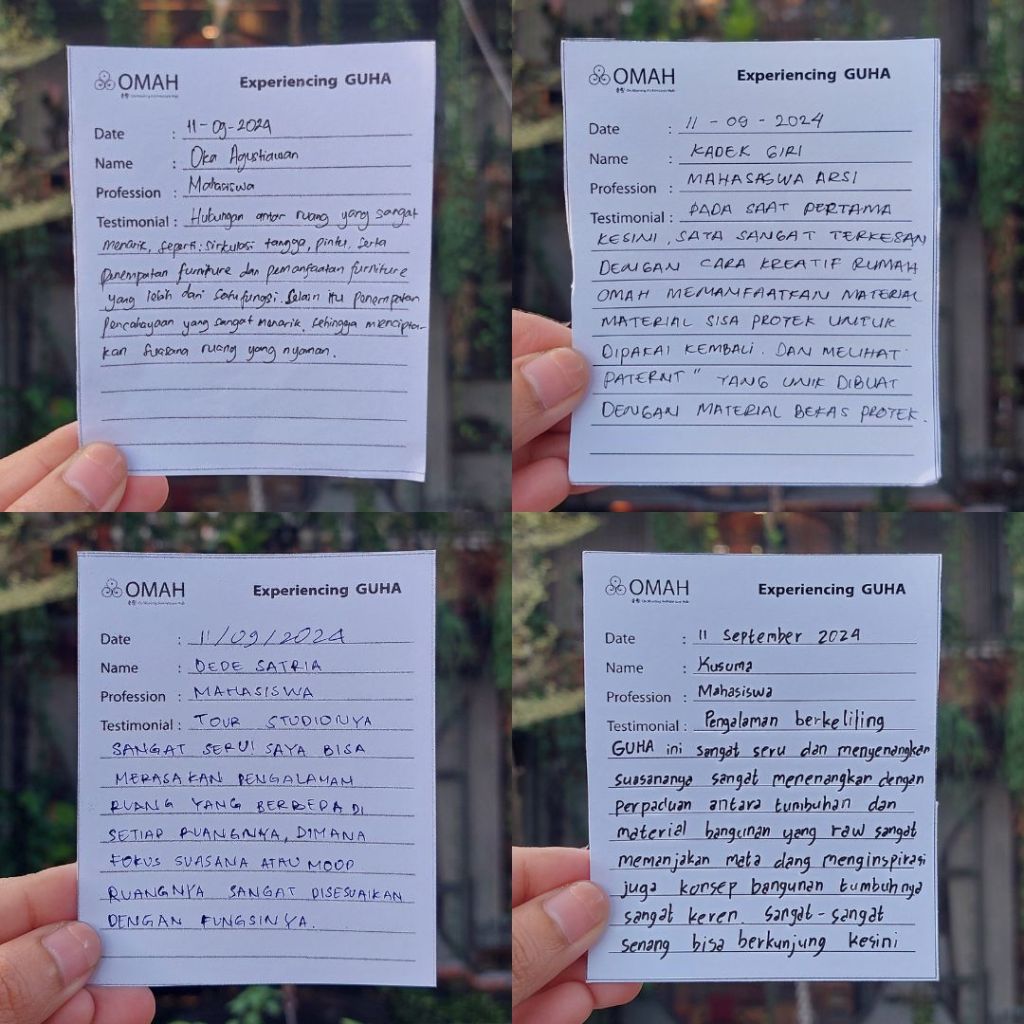 OMAH
Experiencing GUHA
Date : 11-09-2024
Name : Oka Agustiawan
Profession : Mahasiswa
Testimonial : Hubungan antar ruang yang sangat
menarik, seperti; sirkulasi tangga, pintu, serta
penempatan furniture dan pemanfaatan furniture
yang lebih dari satu fungsi. Selain itu penempatan
pencahayaan yang sangat menarik, sehingga mencipta-
kan suasana ruang yang nyaman.
OMAH
Experiencing GUHA
Date : 11 - 09 - 2024
Name : KADEK GIRI
Profession : MAHASASWA ARSI
Testimonial : PADA SAAT PERTAMA
KESINI, SAYA SANGAT TERKESAN
DENGAN CARA KREATIF RUMAH
OMAH MEMANFAATKAN MATERIAL
MATERIAL SISA PROYEK UNTUK
DIPAKAI KEMBALI. DAN MELIHAT
PATERNT" YANG UNIK DIBUAT
DENGAN MATERIAL BEKAS PROYEK.
OMAH
Experiencing GUHA
Date : 11/09/2024
Name : DEDE SATRIA
Profession : MAHASISWA
Testimonial : TOUR STUDIONYA
SANGAT SERU! SAYA BISA
MERASAKAN PENGALAMAN
RUANG YANG BERBEDA DI
SETIAP RUANGNYA, DIMANA
FOKUS SUASANA ATAU MOOD
RUANGNYA SANGAT DISESUAIKAN
DENGAN FUNGSINYA.
OMAH
Experiencing GUHA
Date : 11 September 2024
Name : Kusuma
Profession : Mahasiswa
Testimonial : Pengalaman berkeliling
GUHA ini sangat seru dan menyenangkan
suasananya sangat menenangkan dengan
perpaduan antara tumbuhan dan
material bangunan yang raw sangat
memanjakan mata dang menginspirasi
juga konsep bangunan tumbuhnya
sangat keren. sangat-sangat
senang bisa berkunjung kesini